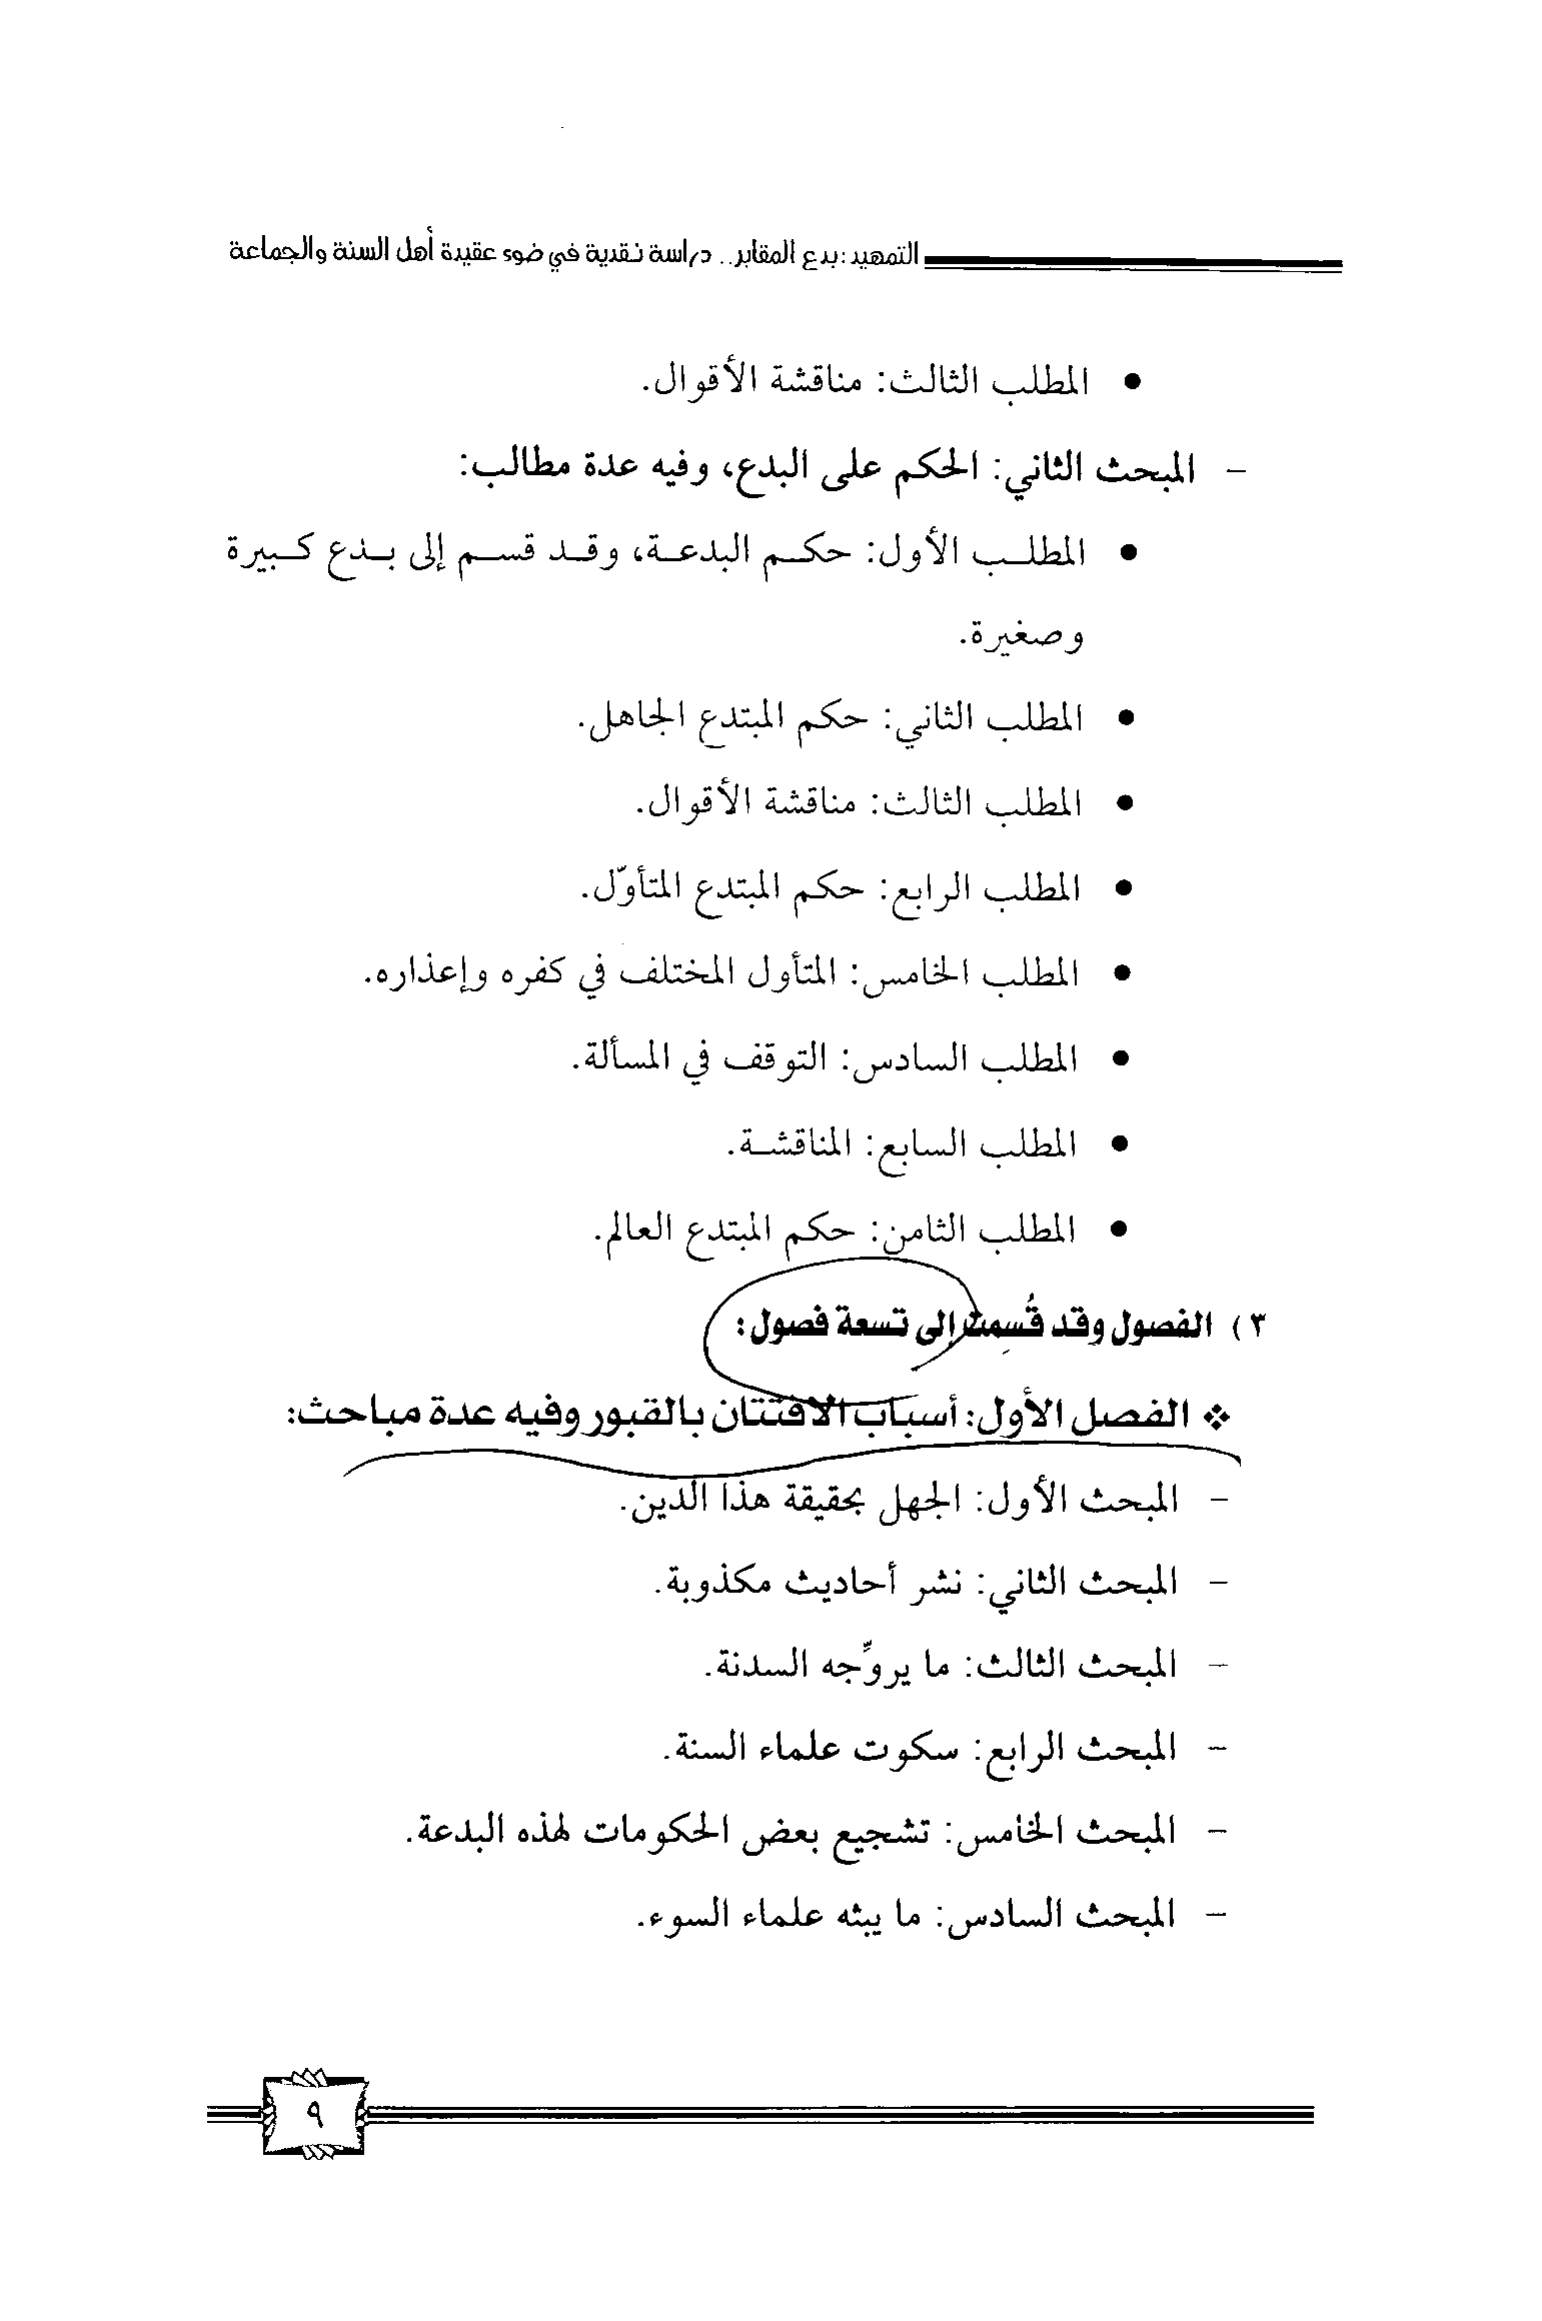 التمهيد: بدع المقابر.. دراسة نقدية في ضوء عقيدة أهل السنة والجماعة
• المطلب الثالث: مناقشة الأقوال.
- المبحث الثاني: الحكم على البدع، وفيه عدة مطالب:
• المطلب الأول: حكم البدعة، وقد قسم إلى بدع كبيرة
وصغيرة.
• المطلب الثاني: حكم المبتدع الجاهل.
• المطلب الثالث: مناقشة الأقوال.
• المطلب الرابع: حكم المبتدع المتأوّل.
• المطلب الخامس: المتأول المختلف في كفره وإعذاره.
• المطلب السادس: التوقف في المسألة.
• المطلب السابع: المناقشة.
• المطلب الثامن: حكم المبتدع العالم.
٣) الفصول وقد قُسِمت إلى تسعة فصول:
❖ الفصل الأول: أسباب الافتتان بالقبور وفيه عدة مباحث:
- المبحث الأول: الجهل بحقيقة هذا الدين.
- المبحث الثاني: نشر أحاديث مكذوبة.
- المبحث الثالث: ما يروِّجه السدنة.
- المبحث الرابع: سكوت علماء السنة.
- المبحث الخامس: تشجيع بعض الحكومات لهذه البدعة.
- المبحث السادس: ما يبثه علماء السوء.
٩